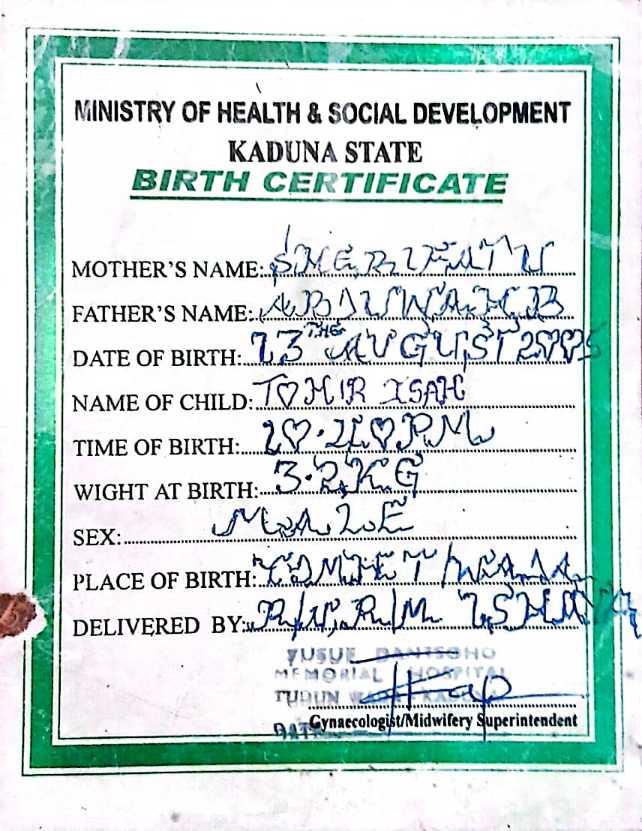 MINISTRY OF HEALTH & SOCIAL DEVELOPMENT
KADUNA STATE
BIRTH CERTIFICATE
MOTHER'S NAME: SHERIFATU
FATHER'S NAME: ABDULWAHAB
DATE OF BIRTH: 23 THE AUGUST 2005
NAME OF CHILD: TOHIR ISAH
TIME OF BIRTH: PM
WIGHT AT BIRTH: 3.2KG
SEX: MALE
PLACE OF BIRTH:
DELIVERED BY: R/N, R/M
YUSUF DANTSOHO
MEMORIAL HOSPITAL
TUDUN WADA KADUNA
Gynaecologist/Midwifery Superintendent